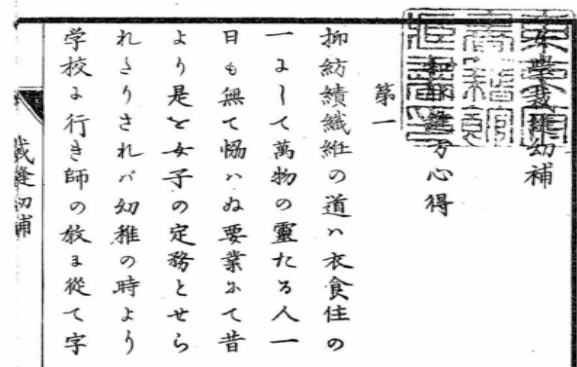 學裁縫幼補
方心得
第一
抑紡績織絍の道ハ衣食住の
一にして萬物の靈たる人一
日も無て愶ハぬ要業にて昔
より是を女子の定務とせら
れたりされバ幼稚の時より
学校に行き師の教に従て字
裁縫幼補